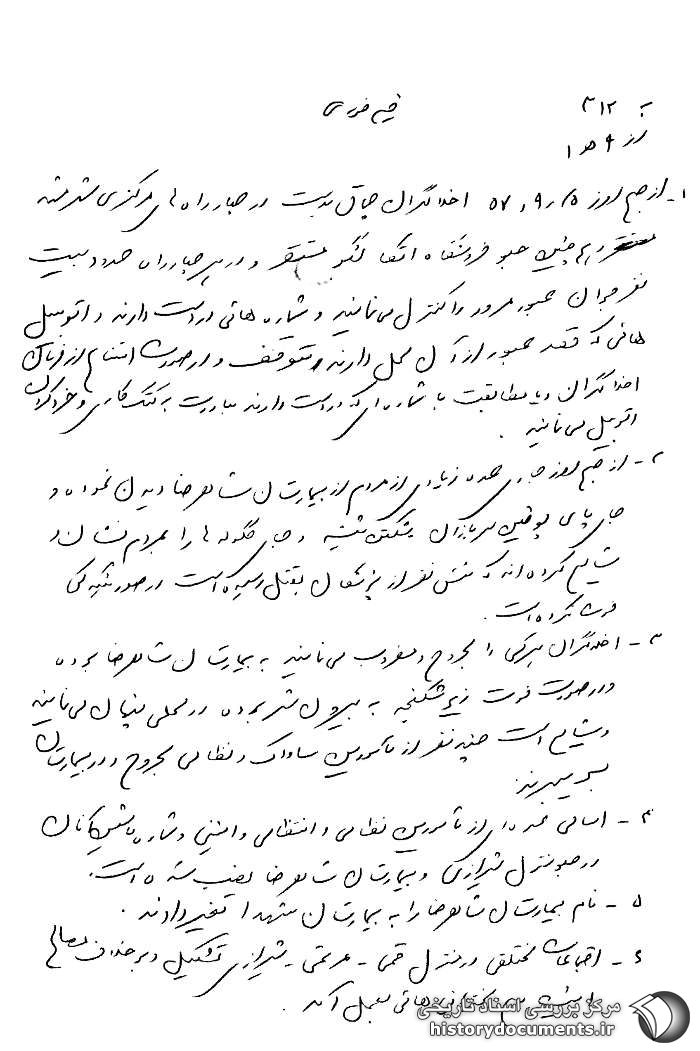 به ۳۱۲ خیلی فوری
از ۹ ه‍ ۱
۱- از صبح روز ۵/ ۹/ ۵۷ اخلالگران چماق بدست در چهارراه های مرکزی شهر مشهد
و همچنین جلو فروشگاه اتکا لشگر مستقر و در هر چهارراه حدود بیست
نفر جوان عبور و مرور را کنترل می نمایند و شماره هائی در دست دارند و اتومبیل
هائی که قصد عبور از آن محل دارند متوقف و در صورت امتناع از فرمان
اخلالگران و یا مطابقت با شماره ای که در دست دارند مبادرت به کتک کاری و خرد کردن
اتومبیل می نمایند.
۲- از صبح روز جاری عده زیادی از مردم از بیمارستان شاهرضا دیدن نموده و
جای پای پوتین سربازان شکستن شیشه و جای گلوله ها را بمردم نشان و
شایع کرده اند که شش نفر از پزشکان بقتل رسیده است در صورتیکه کسی
فوت نکرده است.
۳- اخلالگران هرکس را مجروح و مضروب می نمایند به بیمارستان شاهرضا برده
و در صورت فوت زیر شکنجه به بیرون شهر برده در محلی پنهان می نمایند
و شایع است چند نفر از مأمورین ساواک و نظامی مجروح و در بیمارستان
بسر میبرند.
۴- اسامی عده ای از مأمورین نظامی و انتظامی و امنیتی و شماره ماشین آنان
در جلو منزل شیرازی و بیمارستان شاهرضا نصب شده است.
۵- نام بیمارستان شاهرضا را به بیمارستان شهدا تغییر دادند.
۶- اجتماعات مختلفی در منزل قمی - مرعشی - شیرازی تشکیل و بر خلاف مصالح
سخنرانی هائی بعمل آمد.
مرکز بررسی اسناد تاریخی
historydocuments.ir